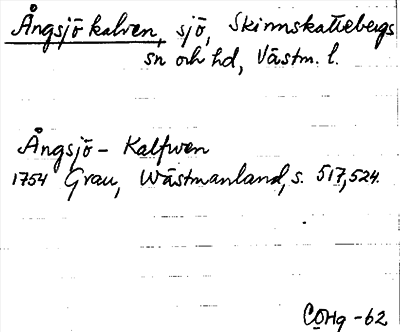 Ångsjökalven, sjö, Skinnskattebergs
sn och hd, Västm. l.
Ångsjö-Kalfwen
1754 Grau, Wästmanland, s. 517, 524.
COHg -62